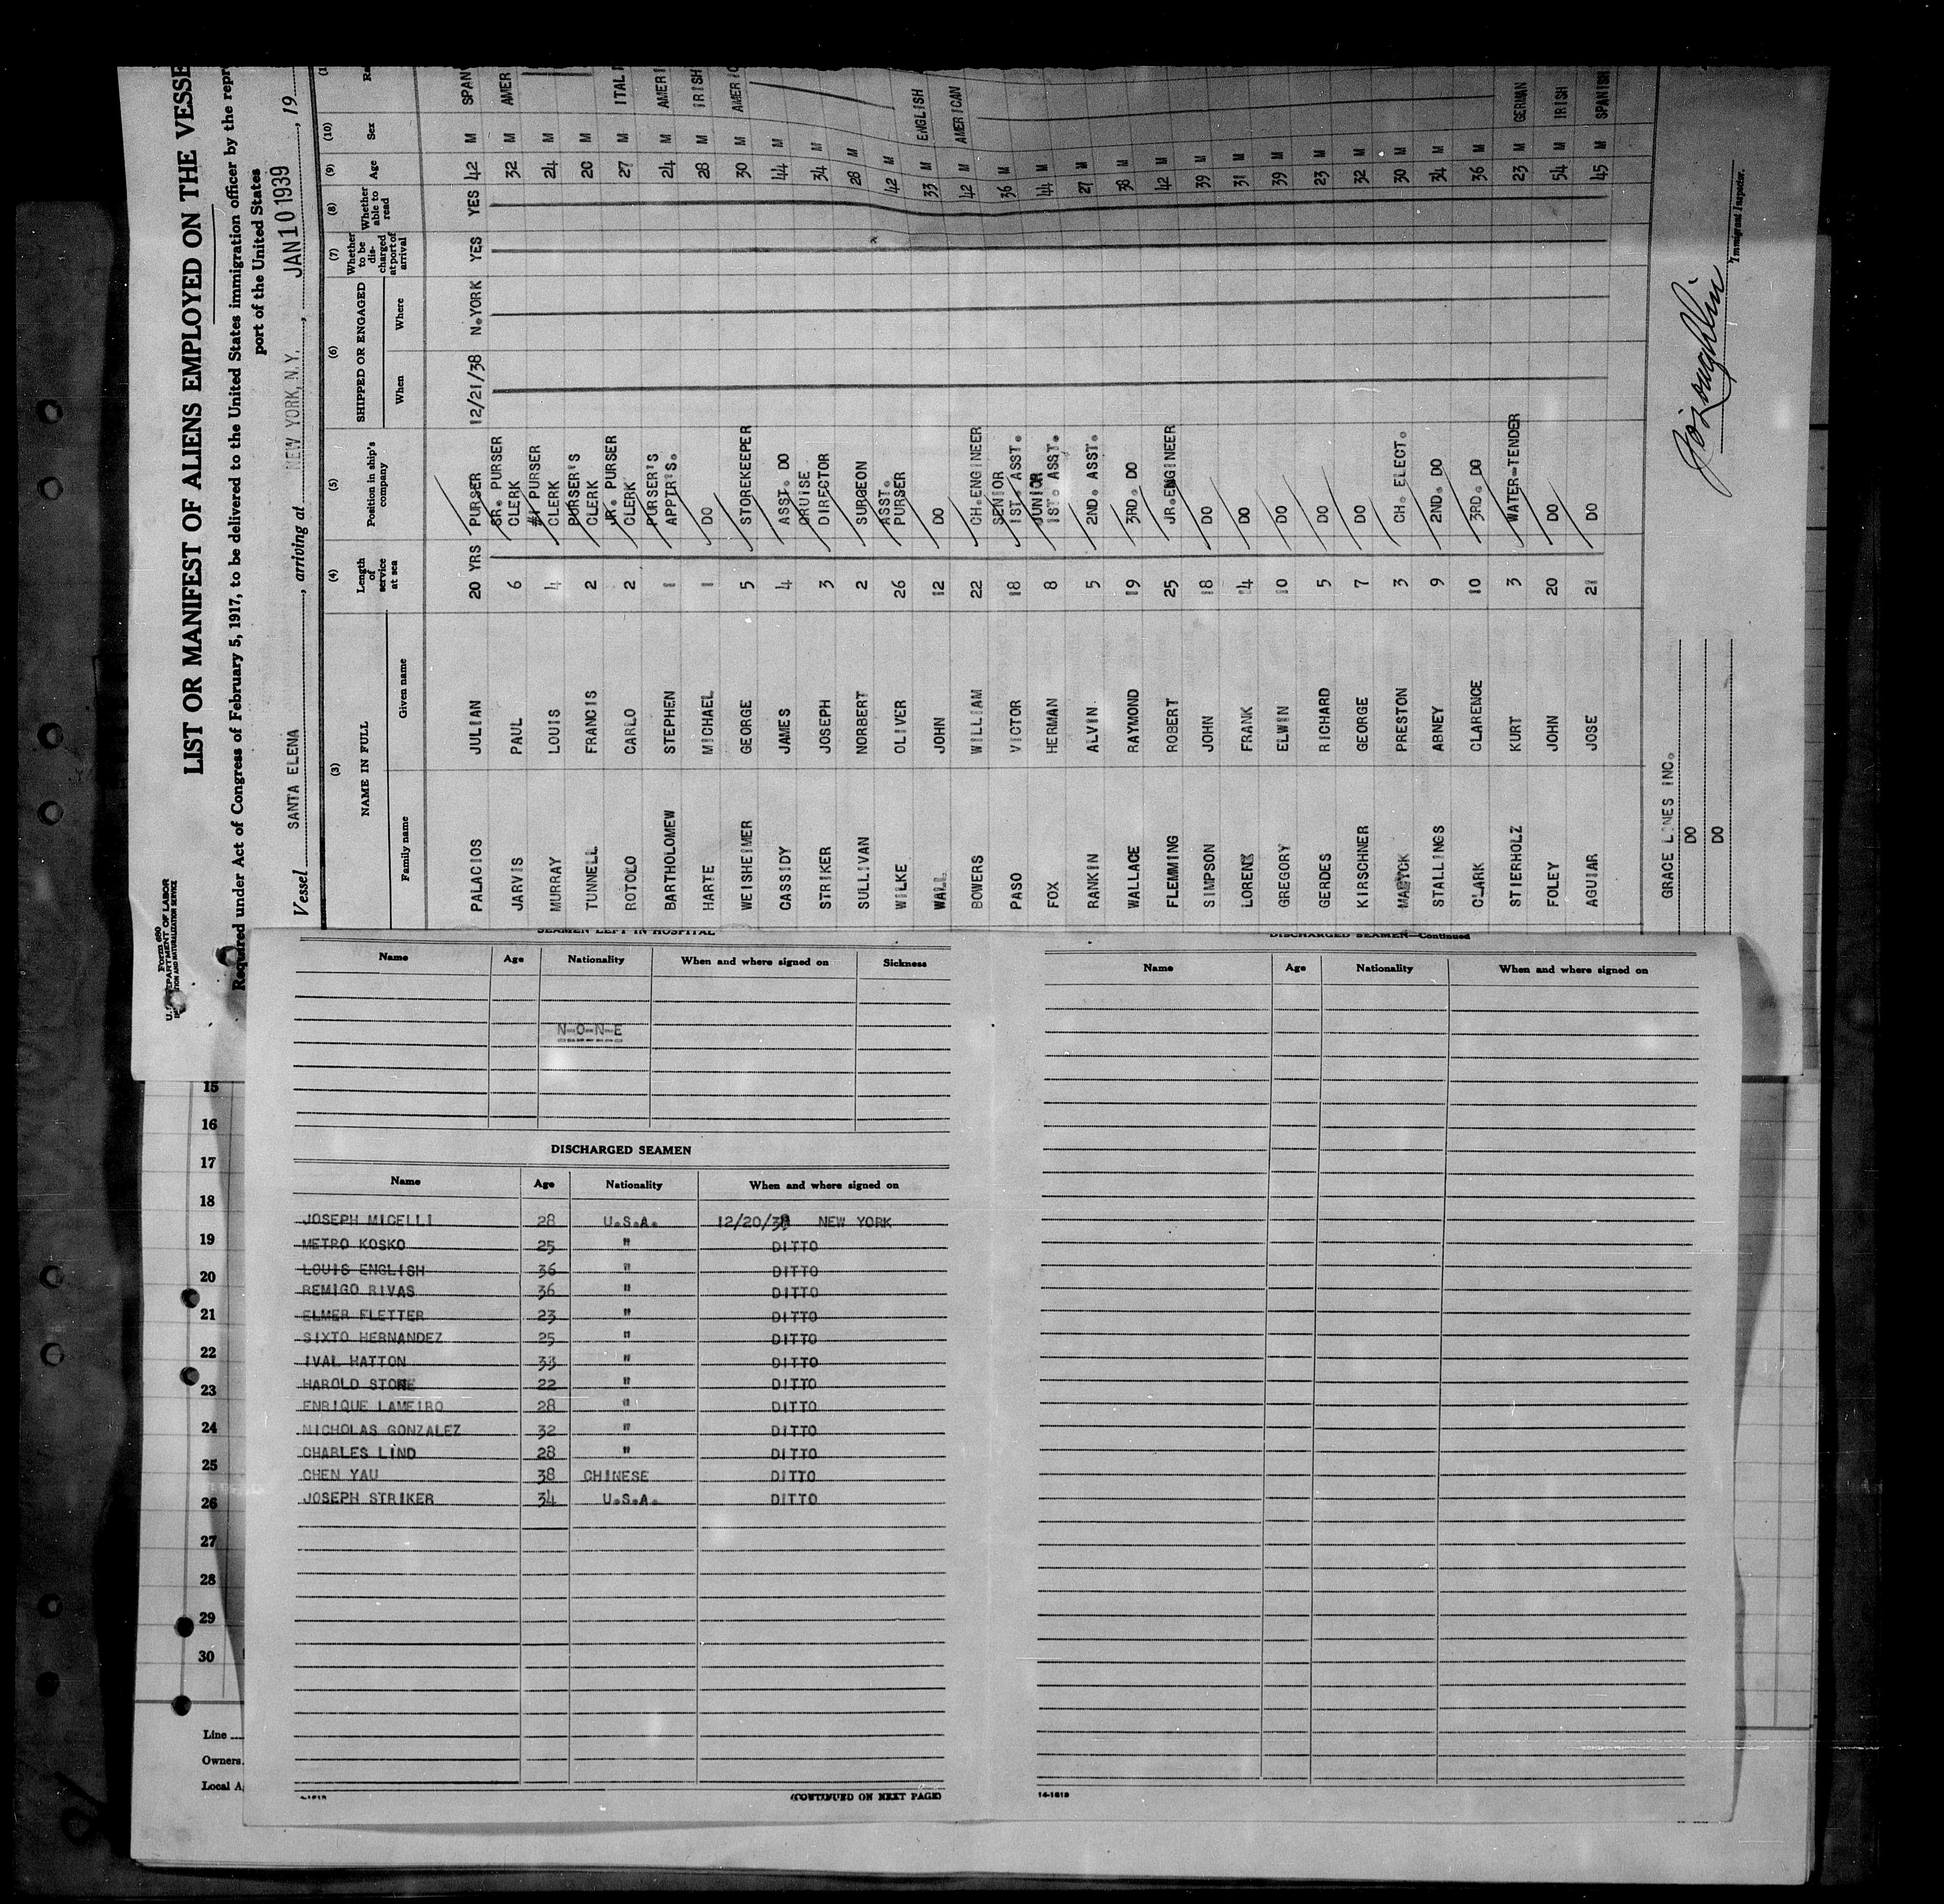 Form 680
LIST OR MANIFEST OF ALIENS EMPLOYED ON THE VESSE
Required under Act of Congress of February 5, 1917, to be delivered to the United States immigration officer by the repr
port of the United States
Vessel SANTA ELENA, arriving at NEW YORK, N.Y., JAN 10 1939, 19
(3) (4) (5) (6) (7) (8) (9) (10)
NAME IN FULL Length of service at sea Position in ship's company SHIPPED OR ENGAGED Whether to be discharged at port of arrival Whether able to read Age Sex
Family name Given name When Where
PALACIOS JULIAN 20 YRS PURSER 12/21/38 N.YORK YES YES 42 M SPAN
JARVIS PAUL 6 SR. PURSER CLERK 32 M AMER
MURRAY LOUIS 4 #1 PURSER CLERK 24 M
TUNNELL FRANCIS 2 PURSER'S CLERK 20 M
ROTOLO CARLO 2 JR. PURSER CLERK 27 M ITAL
BARTHOLOMEW STEPHEN 1 PURSER'S APPTR'S. 24 M AMERI
HARTE MICHAEL 1 DO 28 M IRISH
WEISHEIMER GEORGE 5 STOREKEEPER 30 M AMERIC
CASSIDY JAMES 4 ASST. DO 44 M
STRIKER JOSEPH 3 CRUISE DIRECTOR 34 M
SULLIVAN NORBERT 2 SURGEON 28 M
WILKE OLIVER 26 ASST. PURSER 42 M
WALL JOHN 12 DO 33 M ENGLISH
BOWERS WILLIAM 22 CH.ENGINEER 42 M AMERICAN
PASO VICTOR 18 SENIOR 1ST. ASST. 36 M
FOX HERMAN 8 JUNIOR 1ST. ASST. 44 M
RANKIN ALVIN 5 2ND. ASST. 27 M
WALLACE RAYMOND 19 3RD. DO 38 M
FLEMMING ROBERT 25 JR.ENGINEER 42 M
SIMPSON JOHN 18 DO 39 M
FRANK 14 DO 31 M
GREGORY ELWIN 10 DO 39 M
GERDES RICHARD 5 DO 23 M
KIRSCHNER GEORGE 7 DO 32 M
PRESTON 3 CH. ELECT. 30 M
STALLINGS ABNEY 9 2ND. DO 34 M
CLARK CLARENCE 10 3RD. DO 36 M
STIERHOLZ KURT 3 WATER-TENDER 23 M GERMAN
FOLEY JOHN 20 DO 54 M IRISH
AGUIAR JOSE 21 DO 45 M SPANISH
GRACE LINES INC.
DO
DO
Immigrant Inspector.
SEAMEN LEFT IN HOSPITAL
Name Age Nationality When and where signed on Sickness
N-O-N-E
DISCHARGED SEAMEN
Name Age Nationality When and where signed on
JOSEPH MICELLI 28 U.S.A. 12/20/38 NEW YORK
METRO KOSKO 25 " DITTO
LOUIS ENGLISH 36 " DITTO
REMIGO RIVAS 36 " DITTO
ELMER FLETTER 23 " DITTO
SIXTO HERNANDEZ 25 " DITTO
IVAL HATTON 33 " DITTO
HAROLD STONE 22 " DITTO
ENRIQUE LAMEIRO 28 " DITTO
NICHOLAS GONZALEZ 32 " DITTO
CHARLES LIND 28 " DITTO
CHEN YAU 38 CHINESE DITTO
JOSEPH STRIKER 34 U.S.A. DITTO
(CONTINUED ON NEXT PAGE)
DISCHARGED SEAMEN—Continued
Name Age Nationality When and where signed on
14-1619
15
16
17
18
19
20
21
22
23
24
25
26
27
28
29
30
Line
Owners
Local A